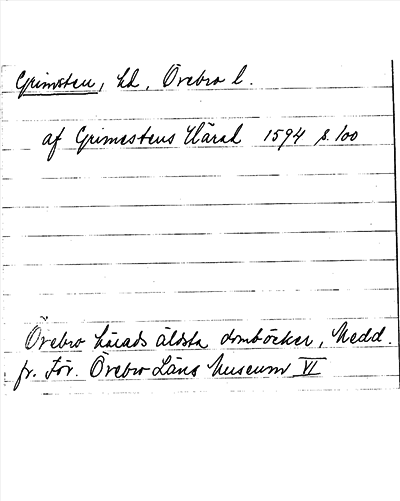 Grimsten, hd, Örebro l.
af Grimestens Härad 1594 s. 100
Örebro härads äldsta domböcker, Medd.
fr. För. Örebro Läns Museum VI